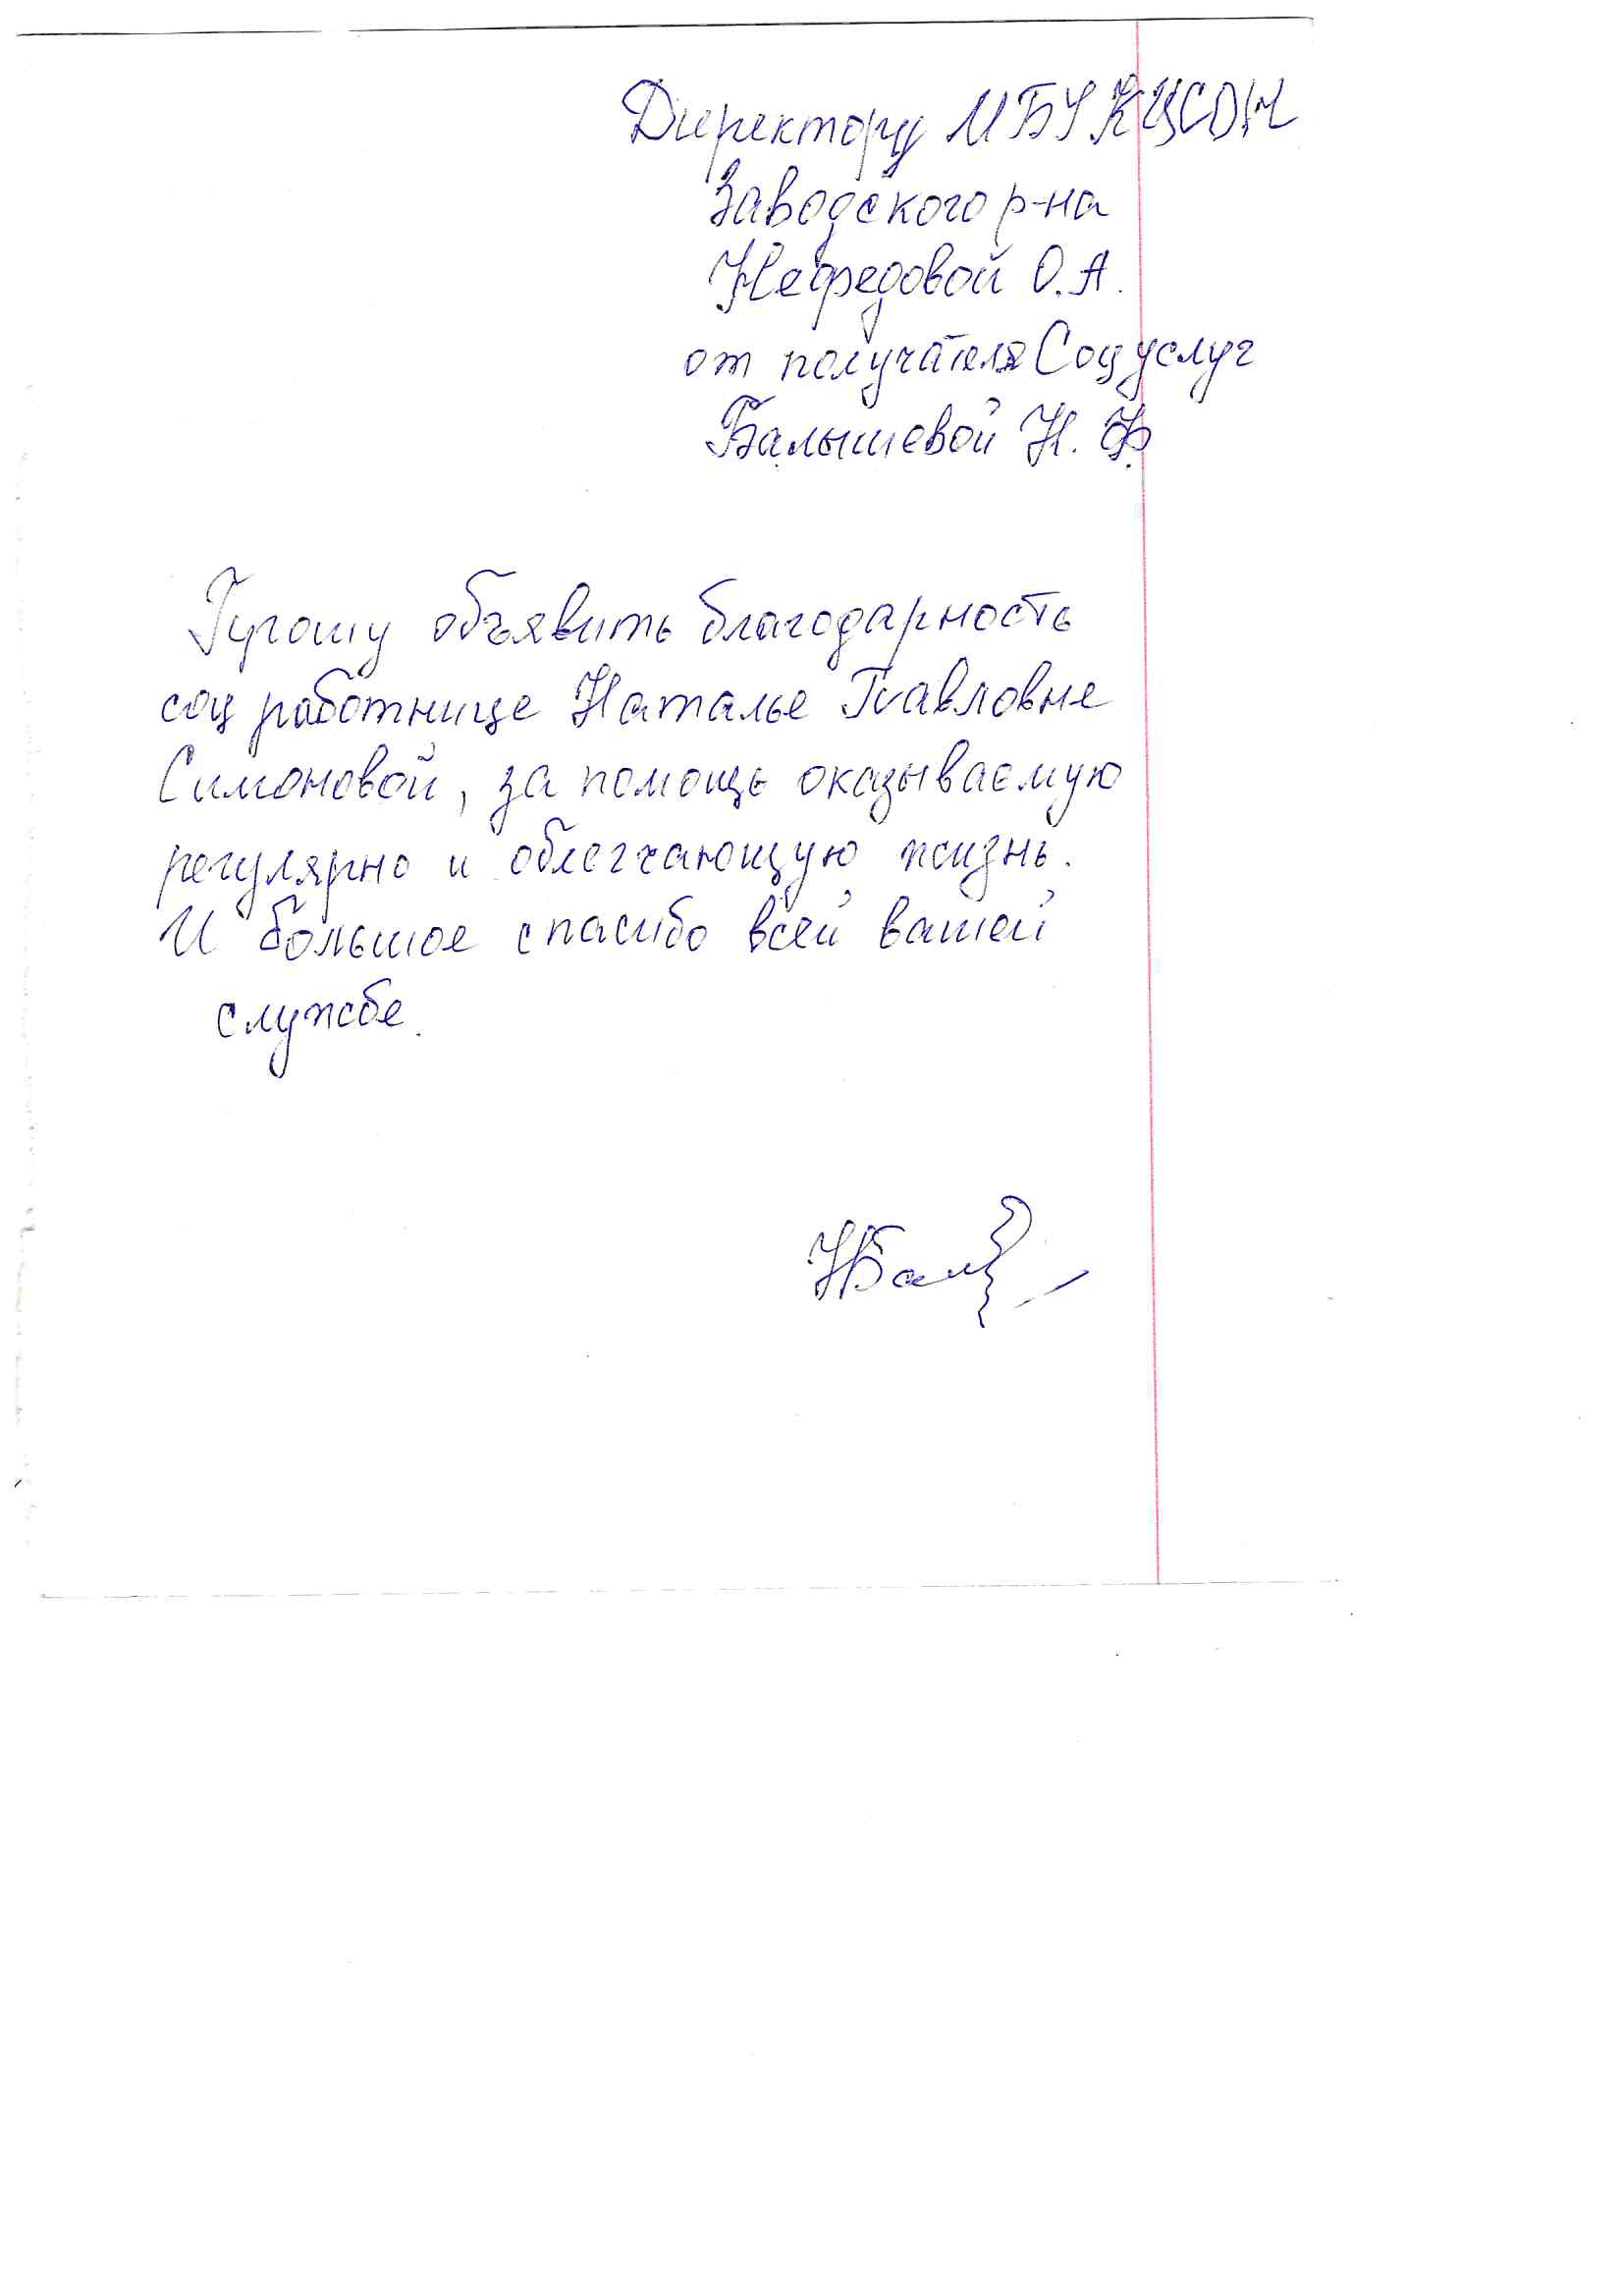 Директору МБУ КЦСОН
Заводского р-на
Нефедовой О.А.
от получателя Соц услуг
Балышевой Н.Ф.
Прошу объявить благодарность
соц работнице Наталье Павловне
Симоновой, за помощь оказываемую
регулярно и облегчающую жизнь.
И большое спасибо всей вашей
службе.
НБал